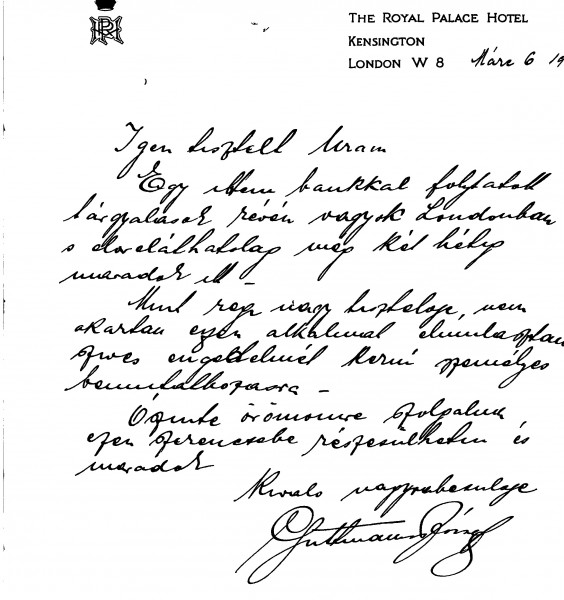 THE ROYAL PALACE HOTEL
KENSINGTON
LONDON W 8 Márc 6 19
Igen tisztelt Uram
Egy itteni bankkal folytatott
tárgyalások révén vagyok Londonban
s előreláthatólag még két hétig
maradok itt -
Mint régi nagy tisztelője, nem
akartam ezen alkalmat elmulasztani
szives engedelmét kérni személyes
bemutatkozásra -
Őszinte örömömre szolgálna
ezen szerencsében részesülhetni és
maradok
Kiváló nagyrabecsülője
Guttmann József